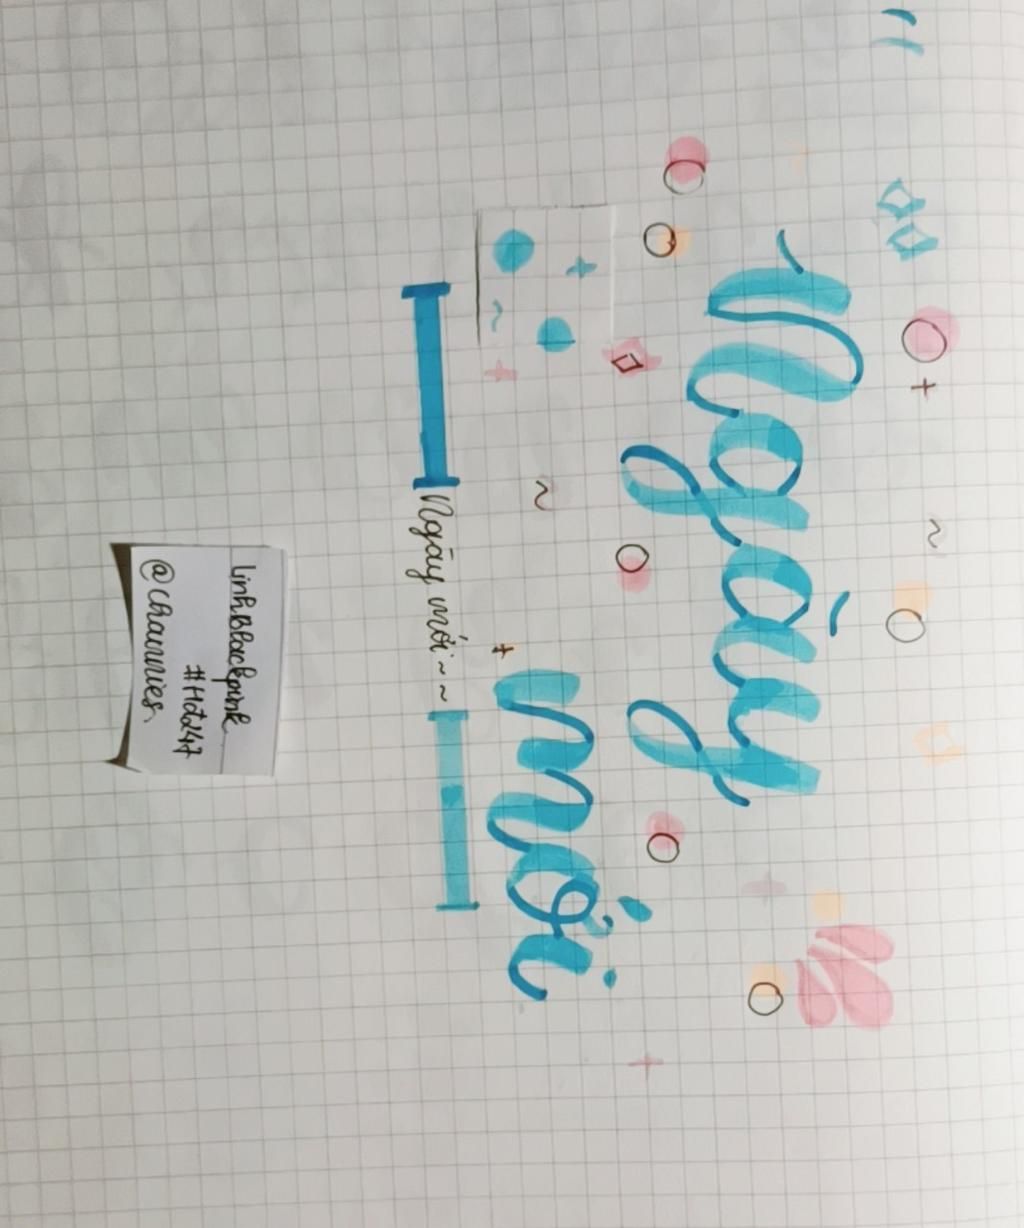 Ngày
mới
Ngày mới ~ ~
linhblackpink
#Hđ247
@chaunnies